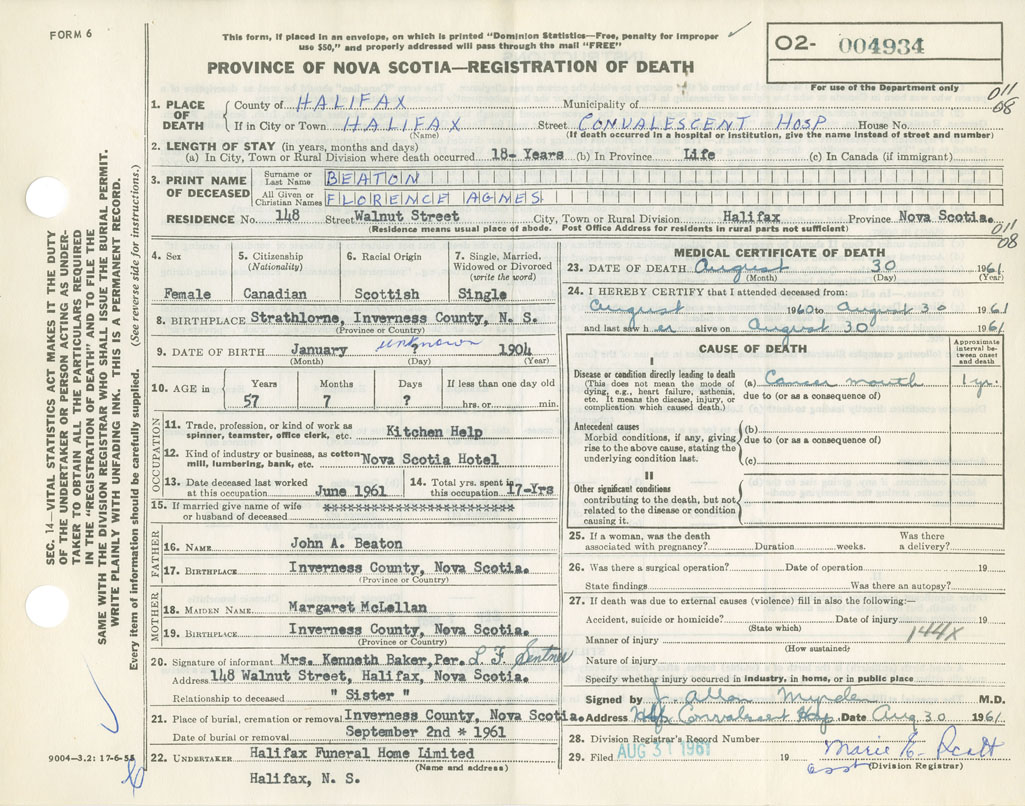 FORM 6
This form, if placed in an envelope, on which is printed "Dominion Statistics—Free, penalty for improper
use $50," and properly addressed will pass through the mail "FREE"
PROVINCE OF NOVA SCOTIA—REGISTRATION OF DEATH
O2- 004934
For use of the Department only
011
08
1. PLACE OF DEATH
County of HALIFAX Municipality of
If in City or Town HALIFAX Street CONVALESCENT HOSP House No.
(Name) (If death occurred in a hospital or institution, give the name instead of street and number)
2. LENGTH OF STAY (in years, months and days)
(a) In City, Town or Rural Division where death occurred 18- Years (b) In Province Life (c) In Canada (if immigrant)
3. PRINT NAME OF DECEASED
Surname or Last Name BEATON
All Given or Christian Names FLORENCE AGNES
RESIDENCE No. 148 Street Walnut Street City, Town or Rural Division Halifax Province Nova Scotia.
(Residence means usual place of abode. Post Office Address for residents in rural parts not sufficient)
011
08
4. Sex
Female
5. Citizenship
(Nationality)
Canadian
6. Racial Origin
Scottish
7. Single, Married,
Widowed or Divorced
(write the word)
Single
8. BIRTHPLACE Strathlorne, Inverness County, N. S.
(Province or Country)
9. DATE OF BIRTH January unknown 1904
(Month) (Day) (Year)
10. AGE in
Years Months Days If less than one day old
57 7 ? hrs. or min.
OCCUPATION
11. Trade, profession, or kind of work as
spinner, teamster, office clerk, etc. Kitchen Help
12. Kind of industry or business, as cotton
mill, lumbering, bank, etc. Nova Scotia Hotel
13. Date deceased last worked
at this occupation June 1961
14. Total yrs. spent in
this occupation 17-Yrs
15. If married give name of wife
or husband of deceased ************************
FATHER
16. NAME John A. Beaton
17. BIRTHPLACE Inverness County, Nova Scotia.
(Province or Country)
MOTHER
18. MAIDEN NAME Margaret McLellan
19. BIRTHPLACE Inverness County, Nova Scotia.
(Province or Country)
20. Signature of informant Mrs. Kenneth Baker, Per. L. F. Sentner
Address 148 Walnut Street, Halifax, Nova Scotia.
Relationship to deceased " Sister "
21. Place of burial, cremation or removal Inverness County, Nova Scotia.
Date of burial or removal September 2nd * 1961
22. UNDERTAKER Halifax Funeral Home Limited
(Name and address)
Halifax, N. S.
MEDICAL CERTIFICATE OF DEATH
23. DATE OF DEATH August 30 1961
(Month) (Day) (Year)
24. I HEREBY CERTIFY that I attended deceased from:
August 1960 to August 30 1961
and last saw her alive on August 30 1961
CAUSE OF DEATH
Approximate
interval be-
tween onset
and death
I
Disease or condition directly leading to death
(This does not mean the mode of
dying, e.g., heart failure, asthenia,
etc. It means the disease, injury, or
complication which caused death.)
(a) Cancer mouth 1 yr.
due to (or as a consequence of)
Antecedent causes
Morbid conditions, if any, giving
rise to the above cause, stating the
underlying condition last.
(b)
due to (or as a consequence of)
(c)
II
Other significant conditions
contributing to the death, but not
related to the disease or condition
causing it.
25. If a woman, was the death
associated with pregnancy? Duration weeks. Was there
a delivery?
26. Was there a surgical operation? Date of operation 19
State findings Was there an autopsy?
27. If death was due to external causes (violence) fill in also the following:—
Accident, suicide or homicide? Date of injury 19
(State which)
144X
Manner of injury
(How sustained)
Nature of injury
Specify whether injury occurred in industry, in home, or in public place
Signed by J. Allan Myrden M.D.
Address Hfx Convalescent Hosp. Date Aug 30 1961
28. Division Registrar's Record Number
29. Filed AUG 31 1961 19 Marie E. Scott
asst (Division Registrar)
SEC. 14—VITAL STATISTICS ACT MAKES IT THE DUTY
OF THE UNDERTAKER OR PERSON ACTING AS UNDER-
TAKER TO OBTAIN ALL THE PARTICULARS REQUIRED
IN THE "REGISTRATION OF DEATH" AND TO FILE THE
SAME WITH THE DIVISION REGISTRAR WHO SHALL ISSUE THE BURIAL PERMIT.
WRITE PLAINLY WITH UNFADING INK. THIS IS A PERMANENT RECORD.
Every item of information should be carefully supplied. (See reverse side for instructions.)
9004-3.2: 17-6-55